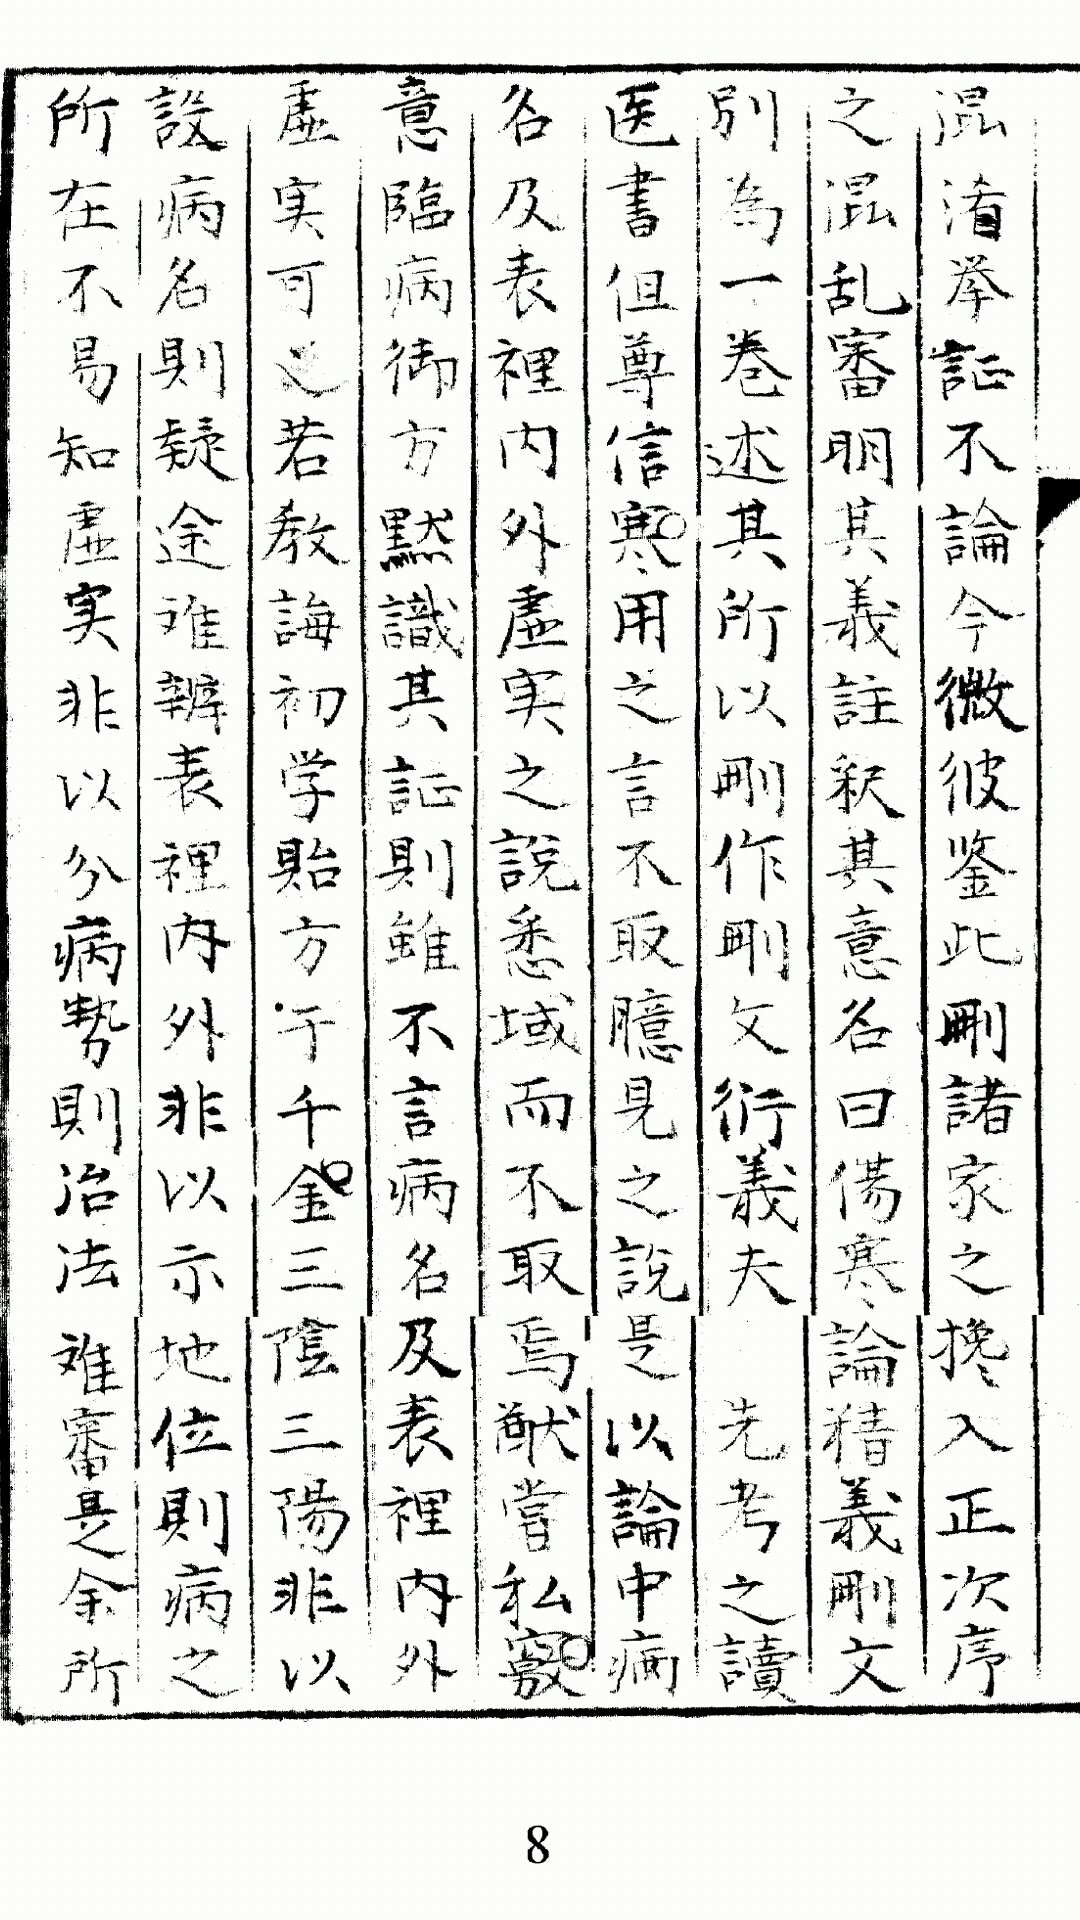 混淆举証不論今微彼鉴此刪諸家之搀入正次序
之混乱審明其義註釈其意名曰傷寒論精義刪文
別為一巻述其所以刪作刪文衍義夫 先考之讀
医書但尊信寒用之言不取臆見之說是以論中病
名及表裡内外虛実之說悉域而不取焉猷嘗私竅
意臨病御方黙識其証則雖不言病名及表裡内外
虛実可也若教誨初学貽方于千金三陰三陽非以
設病名則疑途难辨表裡内外非以示地位則病之
所在不易知虛実非以分病勢則治法难審是余所
8